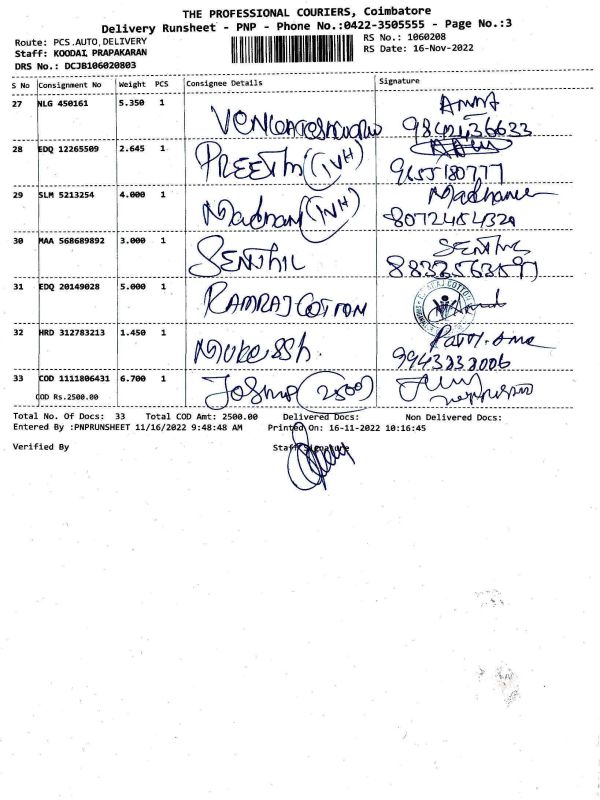 THE PROFESSIONAL COURIERS, Coimbatore
Delivery Runsheet - PNP - Phone No.:0422-3505555 - Page No.:3
Route: PCS.AUTO,DELIVERY
RS No.: 1060208
Staff: KOODAL PRAPAKARAN
RS Date: 16-Nov-2022
DRS No.: DCJB106020803
S No Consignment No Weight PCS Consignee Details Signature
27 NLG 450161 5.350 1
9842436633
28 EDQ 12265509 2.645 1 PREETHI (IVH)
29 SLM 5213254 4.000 1 Madhan (IVH)
30 MAA 568689892 3.000 1 SENTHIL
31 EDQ 20149028 5.000 1 RAMRAJ COTTON
32 HRD 312783213 1.450 1
33 COD 1111806431 6.700 1 (2500)
COD Rs.2500.00
Total No. Of Docs: 33 Total COD Amt: 2500.00 Delivered Docs: Non Delivered Docs:
Entered By :PNPRUNSHEET 11/16/2022 9:48:48 AM Printed On: 16-11-2022 10:16:45
Verified By Staff Signature